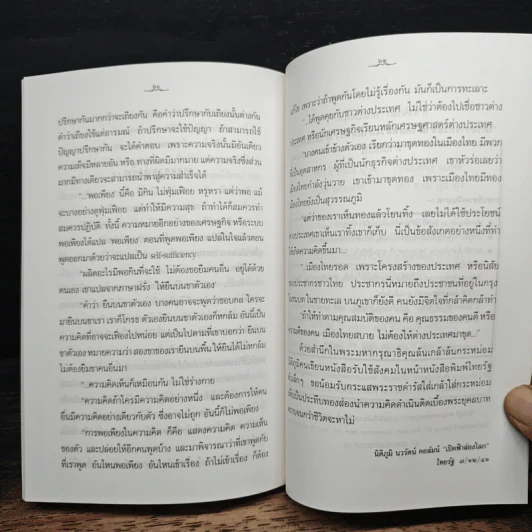 ปรึกษากันมากกว่าจะเถียงกัน คือคำว่าปรึกษากับเถียงนั้นต่างกัน
คำว่าเถียงใช้แต่อารมณ์ ถ้าปรึกษาจะใช้ปัญญา ถ้าสามารถใช้
ปัญญาปรึกษากัน จะได้คำตอบ เพราะความจริงนั้นมีอันเดียว
ความเท็จมีหลายอัน หรือ ทางที่ผิดมีมากมาย แต่ความจริงซึ่งส่วน
มากมีทางเดียวจะสามารถนำพาสู่ความสำเร็จได้
"...พอเพียง' นี้คือ มีกิน ไม่ฟุ่มเฟือย หรูหรา แต่ว่าพอ แม้
จะบางอย่างดูฟุ่มเฟือย แต่ทำให้มีความสุข ถ้าทำได้ก็สมควรทำ
สมควรปฏิบัติ ทั้งนี้ ความหมายอีกอย่างของเศรษฐกิจ หรือระบบ
พอเพียงได้แปล 'พอเพียง' ตอนที่พูดพอเพียง แปลในใจแล้วตอน
พูดออกมาด้วยว่าจะแปลเป็น self-sufficiency
"ผลิตอะไรมีพอกินที่จะใช้ ไม่ต้องขอยืมคนอื่น อยู่ได้ด้วย
ตนเอง เขาแปลจากภาษาฝรั่ง ให้ยืนบนขาตัวเอง"
"คำว่า ยืนบนขาตัวเอง บางคนอาจจะพูดว่าชอบกล ใครจะ
มายืนบนขาเรา เราก็โกรธ ตัวเองยืนบนขาตัวเองก็หกล้ม อันนี้เป็น
ความคิดที่อาจจะเฟื่องไปหน่อย แต่เป็นไปตามที่เขาบอกว่า ยืนบน
ขาตัวเอง หมายความว่า สองขาของเรายืนบนพื้น ให้ยืนได้ไม่หกล้ม
ไม่ต้องยืมขาคนอื่นมา
"...ความคิดเห็นก็เหมือนกัน ไม่ใช่ร่างกาย
"ความคิดถ้าใครมีความคิดอย่างหนึ่ง และต้องการให้คน
อื่นมีความคิดอย่างเดียวกับตัว ซึ่งอาจไม่ถูก อันนี้ก็ไม่พอเพียง
"การพอเพียงในความคิด ก็คือ แสดงความคิด ความเห็น
ของตัว และปล่อยให้อีกคนพูดบ้าง และมาพิจารณาว่าที่เขาพูดกับ
ที่เราพูด อันไหนพอเพียง อันไหนเข้าเรื่อง ถ้าไม่เข้าเรื่อง ก็ต้อง
แก้ไข เพราะว่าถ้าพูดกันโดยไม่รู้เรื่องกัน มันก็เป็นการทะเลาะ
"...ได้พูดคุยกับชาวต่างประเทศ ไม่ใช่ว่าต้องไปเชื่อชาวต่าง
ประเทศ หรือนักเศรษฐกิจเรียนหลักเศรษฐศาสตร์ต่างประเทศ
"บางคนเข้าข้างตัวเอง เรียกว่ามาขุดทองในเมืองไทย มีพวก
อุตสาหกร ผู้ที่เป็นนักธุรกิจต่างประเทศ เขาหัวร่อเลยว่า
เมืองไทยกำลังวุ่นวาย เขาเข้ามาขุดทอง เพราะเมืองไทยมีทอง
เมืองไทยยังเป็นสุวรรณภูมิ
"แต่ว่าของเราเห็นทองแล้วโยนทิ้ง เลยไม่ได้ใช้ประโยชน์
ต่างประเทศเขาเห็นเราทิ้งเขาก็เก็บ นี่เป็นข้อสังเกตอย่างหนึ่งที่ทำ
ให้เกิดความคิดขึ้นมา...
"...เมืองไทยรอด เพราะโครงสร้างของประเทศ หรือนิสัย
ของประชากรชาวไทย ประชากรนี่หมายถึงประชาชนที่อยู่ในกรุง
ในชายทะเล บนภูเขาก็ยังดี คนยังมีจิตใจที่กล้าคิดกล้าทำ
"ถ้าให้ทำตามคุณสมบัติของคน คือ คุณธรรมของคนดี หรือ
ความดีของคน เมืองไทยสบาย ไม่ต้องให้ต่างประเทศมาขุด..."
ด้วยสำนึกในพระมหากรุณาธิคุณล้นเกล้าล้นกระหม่อม
คนเขียนหนังสือรับใช้สังคมในหน้าหนังสือพิมพ์ไทยรัฐ
ขอน้อมรับกระแสพระราชดำรัสใส่เกล้าใส่กระหม่อม
เป็นประทีปทองส่องนำความคิดดำเนินติดเบื้องพระยุคลบาท
จนกว่าชีวิตจะหาไม่
นิติภูมิ นวรัตน์ คอลัมน์ "เปิดฟ้าส่องโลก"
ไทยรัฐ ๗/๑๒/๔๑